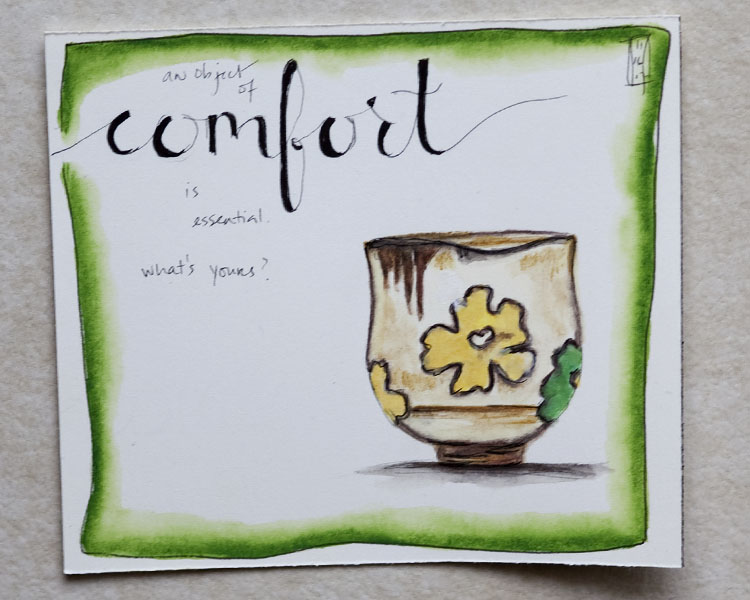 an object
of
comfort
is
essential.
what's yours?